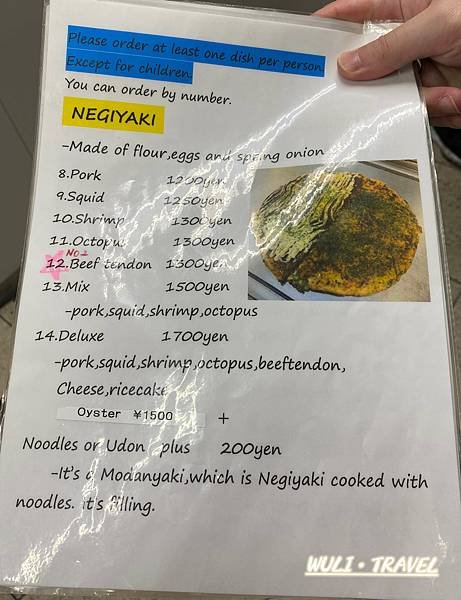 Please order at least one dish per person.
Except for children.
You can order by number.
NEGIYAKI
-Made of flour,eggs and spring onion
8.Pork 1200yen
9.Squid 1250yen
10.Shrimp 1300yen
11.Octopus 1300yen
No1
12.Beef tendon 1300yen
13.Mix 1500yen
-pork,squid,shrimp,octopus
14.Deluxe 1700yen
-pork,squid,shrimp,octopus,beeftendon,
Cheese,ricecake
Oyster ¥1500 +
Noodles or Udon plus 200yen
-It's a Modanyaki,which is Negiyaki cooked with
noodles. it's filling.
WULI • TRAVEL